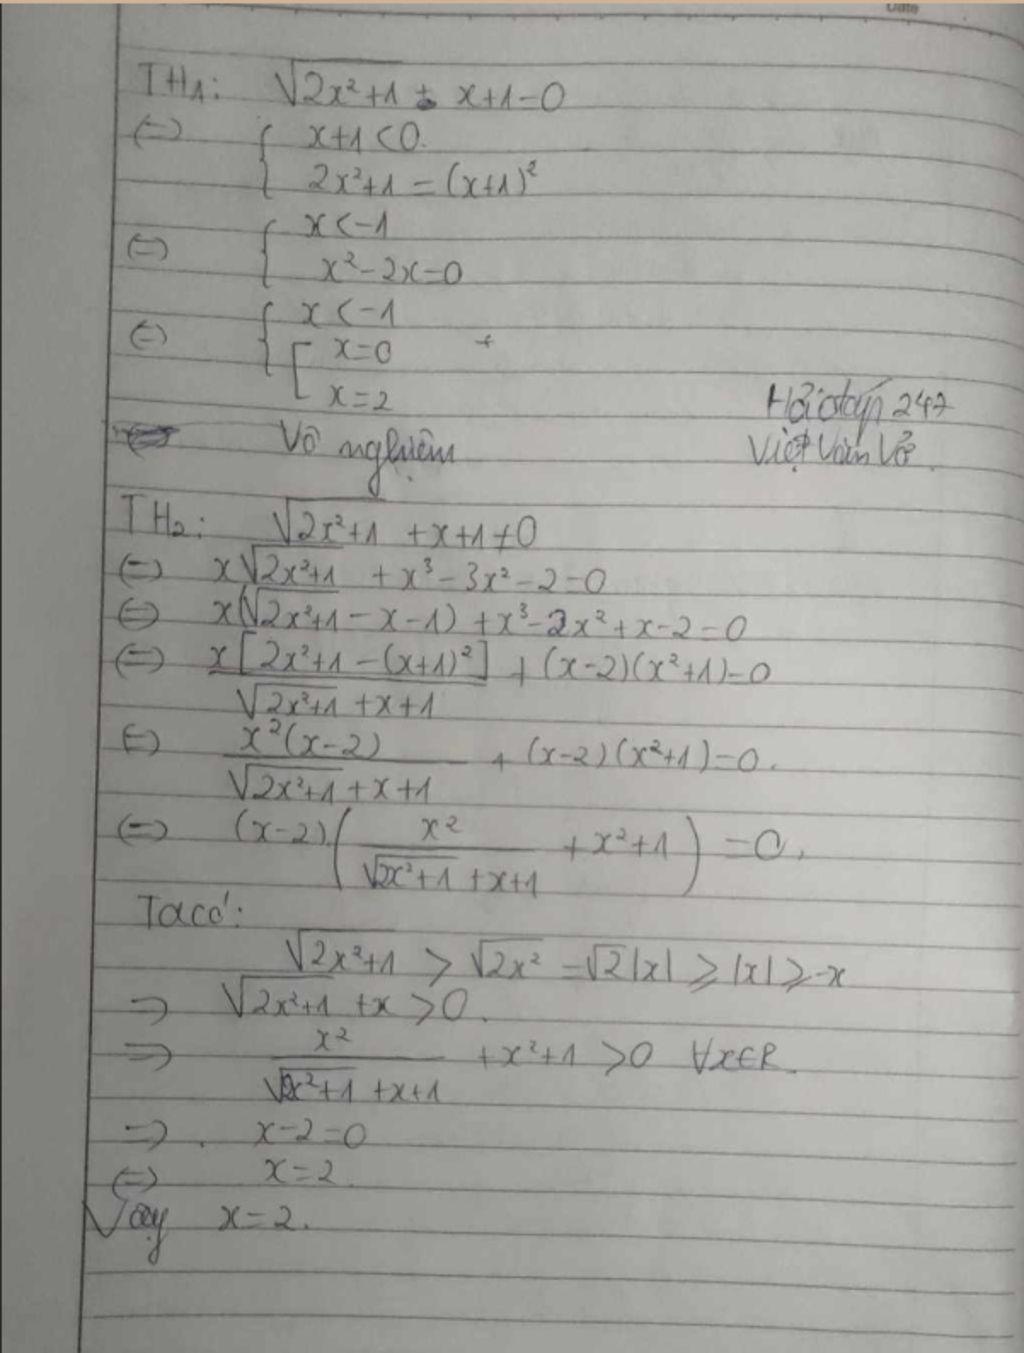 Date
TH1: √(2x²+1) + x+1=0
(=) { x+1<0.
2x²+1 = (x+1)²
(=) { x<-1
x²-2x=0
(=) { x<-1
[ x=0
x=2
Hỏi đáp 247
Việt Văn Võ
Vô nghiệm
TH2: √(2x²+1) +x+1≠0
(=) x√(2x²+1) + x³-3x²-2=0
(=) x(√(2x²+1) -x-1) +x³-2x²+x-2=0
(=) x[2x²+1-(x+1)²] / (√(2x²+1) +x+1) + (x-2)(x²+1)=0
(=) x²(x-2) / (√(2x²+1) +x+1) + (x-2)(x²+1)=0.
(=) (x-2).( x² / (√(2x²+1) +x+1) +x²+1 ) =0.
Ta có:
√(2x²+1) > √(2x²) =√2|x| ≥ |x| ≥ -x
=> √(2x²+1) +x >0.
=> x² / (√(2x²+1) +x+1) +x²+1 >0 ∀x∈R.
=> . x-2=0
(=) x=2.
Vậy x=2.